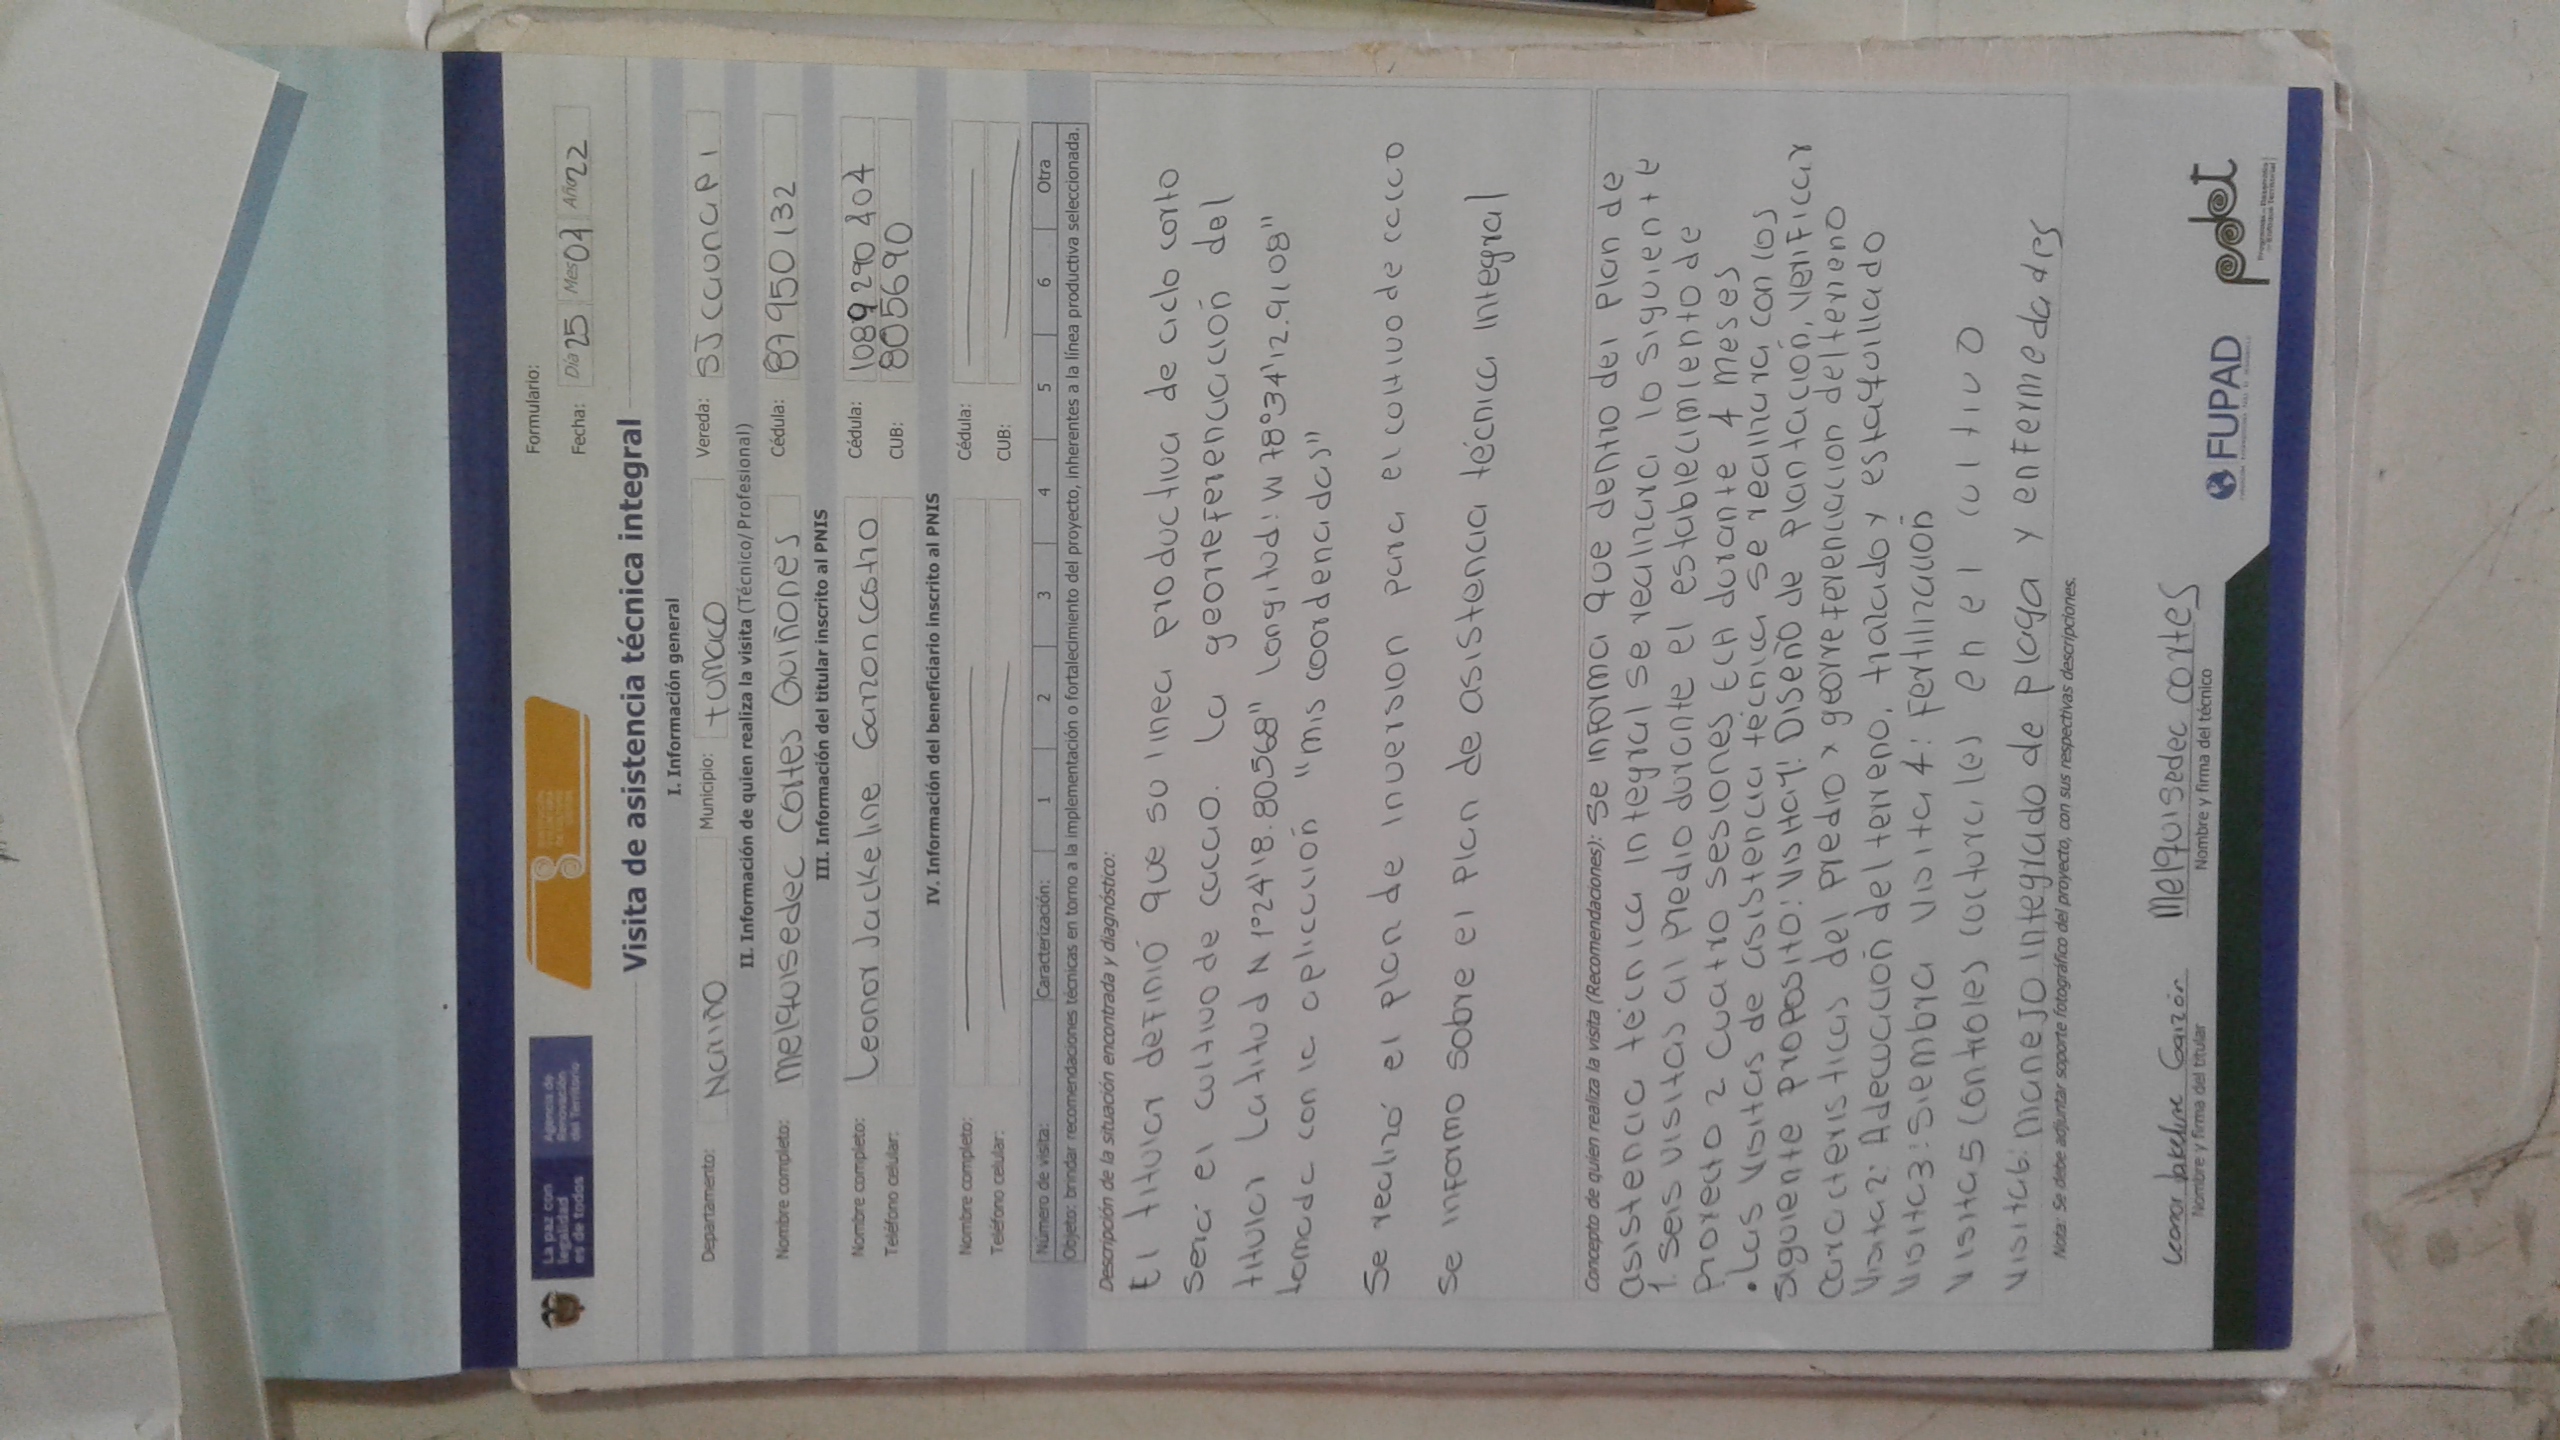 La paz con
legalidad
es de todos
Agencia de
Renovación
del Territorio
Formulario:
Fecha: Día 25 Mes 04 Año 22
Visita de asistencia técnica integral
I. Información general
Departamento: Nariño Municipio: tumaco Vereda: SJ caunapi
II. Información de quien realiza la visita (Técnico/ Profesional)
Nombre completo: Melquisedec Cortes Quiñones Cédula: 87950132
III. Información del titular inscrito al PNIS
Nombre completo: Leonor Jackeline Garzon Castro Cédula: 1089290404
Teléfono celular: CUB: 805690
IV. Información del beneficiario inscrito al PNIS
Nombre completo: Cédula:
Teléfono celular: CUB:
Número de visita: Caracterización: 1 2 3 4 5 6 Otra
Objeto: brindar recomendaciones técnicas en torno a la implementación o fortalecimiento del proyecto, inherentes a la línea productiva seleccionada.
Descripción de la situación encontrada y diagnóstico:
El titular definió que su linea productiva de ciclo corto
será el cultivo de cacao. La georreferenciación del
titular Latitud N 1°24'18.80568" Longitud: W 78°34'12.9108"
tomada con la aplicación "mis coordenadas"
Se realizó el plan de inversion para el cultivo de cacao
se informo sobre el plan de asistencia técnica integral
Concepto de quien realiza la visita (Recomendaciones): se informa que dentro del plan de
asistencia técnica integral se realizara lo siguiente
1. seis visitas al predio durante el establecimiento de
proyecto 2 cuatro sesiones ECA durante 4 meses
• Las visitas de asistencia técnica se realizara con los
siguiente proposito: Visita 1: Diseño de plantación, verificar
caracteristicas del predio y georreferenciacion del terreno
Visita 2: Adecuación del terreno, trazado y estaquillado
Visita 3: siembra Visita 4: Fertilización
Visita 5 Controles culturales en el cultivo
Visita 6: Manejo integrado de plaga y enfermedades
Nota: Se debe adjuntar soporte fotográfico del proyecto, con sus respectivas descripciones.
Leonor Jakeline Garzón Melquisedec Cortes
Nombre y firma del titular Nombre y firma del técnico
FUPAD pdet